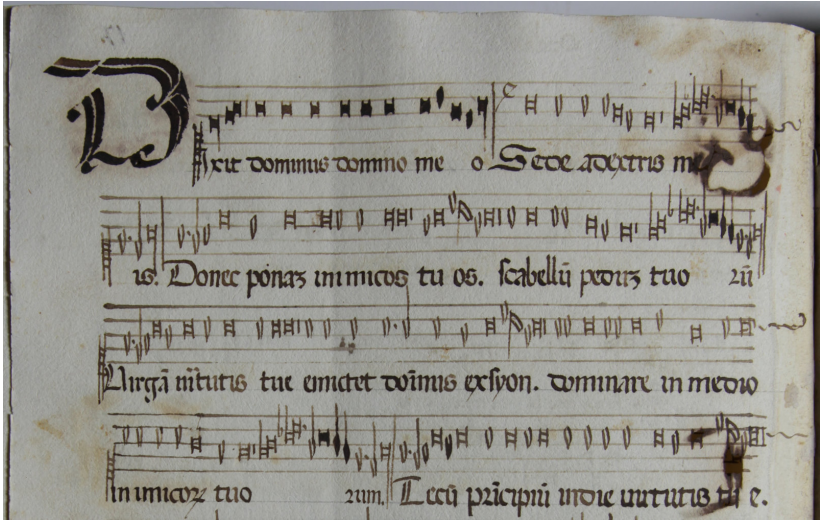 Dixit dominus domino meo Sede adextris me
is. Donec ponaꝫ inimicos tuos. scabellū pedūꝫ tuo rū
Uirgā uirtutis tue emictet doīnus exsyon. dominare in medio
in imicoꝝ tuo rum. Tecū prīcipiū indie uirtutis tue.